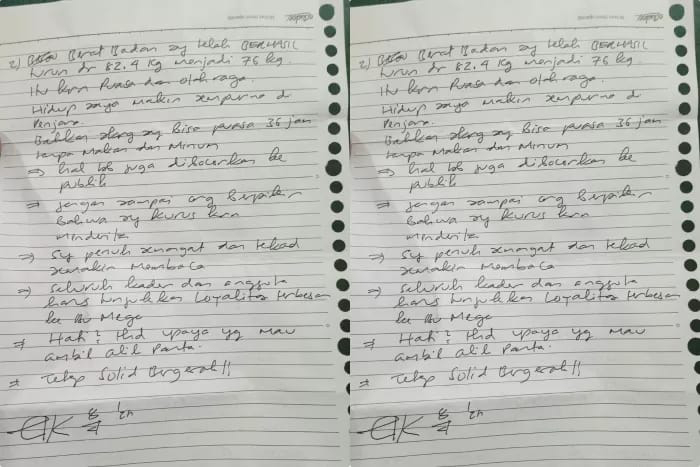 2) Berat Badan sy telah BERHASIL
turun dr 82.4 Kg menjadi 76 kg.
Itu krn Puasa dan olahraga.
Hidup saya makin sempurna di
Penjara.
Bahkan skrg sy Bisa puasa 36 jam
tanpa Makan dan Minum
⇒ hal tsb juga dibocorkan ke
publik
⇒ Jangan sampai org Berpikir
Bahwa sy kurus krn
menderita
⇒ Sy penuh semangat dan tekad
semakin Membaca
⇒ Seluruh kader dan anggota
harus tunjukkan Loyalitas terbesar
ke Ibu Mega
⇒ Hati2 thd upaya yg mau
ambil alih Partai.
⇒ Tetap Solid Bergerak!!
8/4
2) Berat Badan sy telah BERHASIL
turun dr 82.4 Kg menjadi 76 kg.
Itu krn Puasa dan olahraga.
Hidup saya makin sempurna di
Penjara.
Bahkan skrg sy Bisa puasa 36 jam
tanpa Makan dan Minum
⇒ hal tsb juga dibocorkan ke
publik
⇒ Jangan sampai org Berpikir
Bahwa sy kurus krn
menderita
⇒ Sy penuh semangat dan tekad
semakin Membaca
⇒ Seluruh kader dan anggota
harus tunjukkan Loyalitas terbesar
ke Ibu Mega
⇒ Hati2 thd upaya yg mau
ambil alih Partai.
⇒ Tetap Solid Bergerak!!
8/4